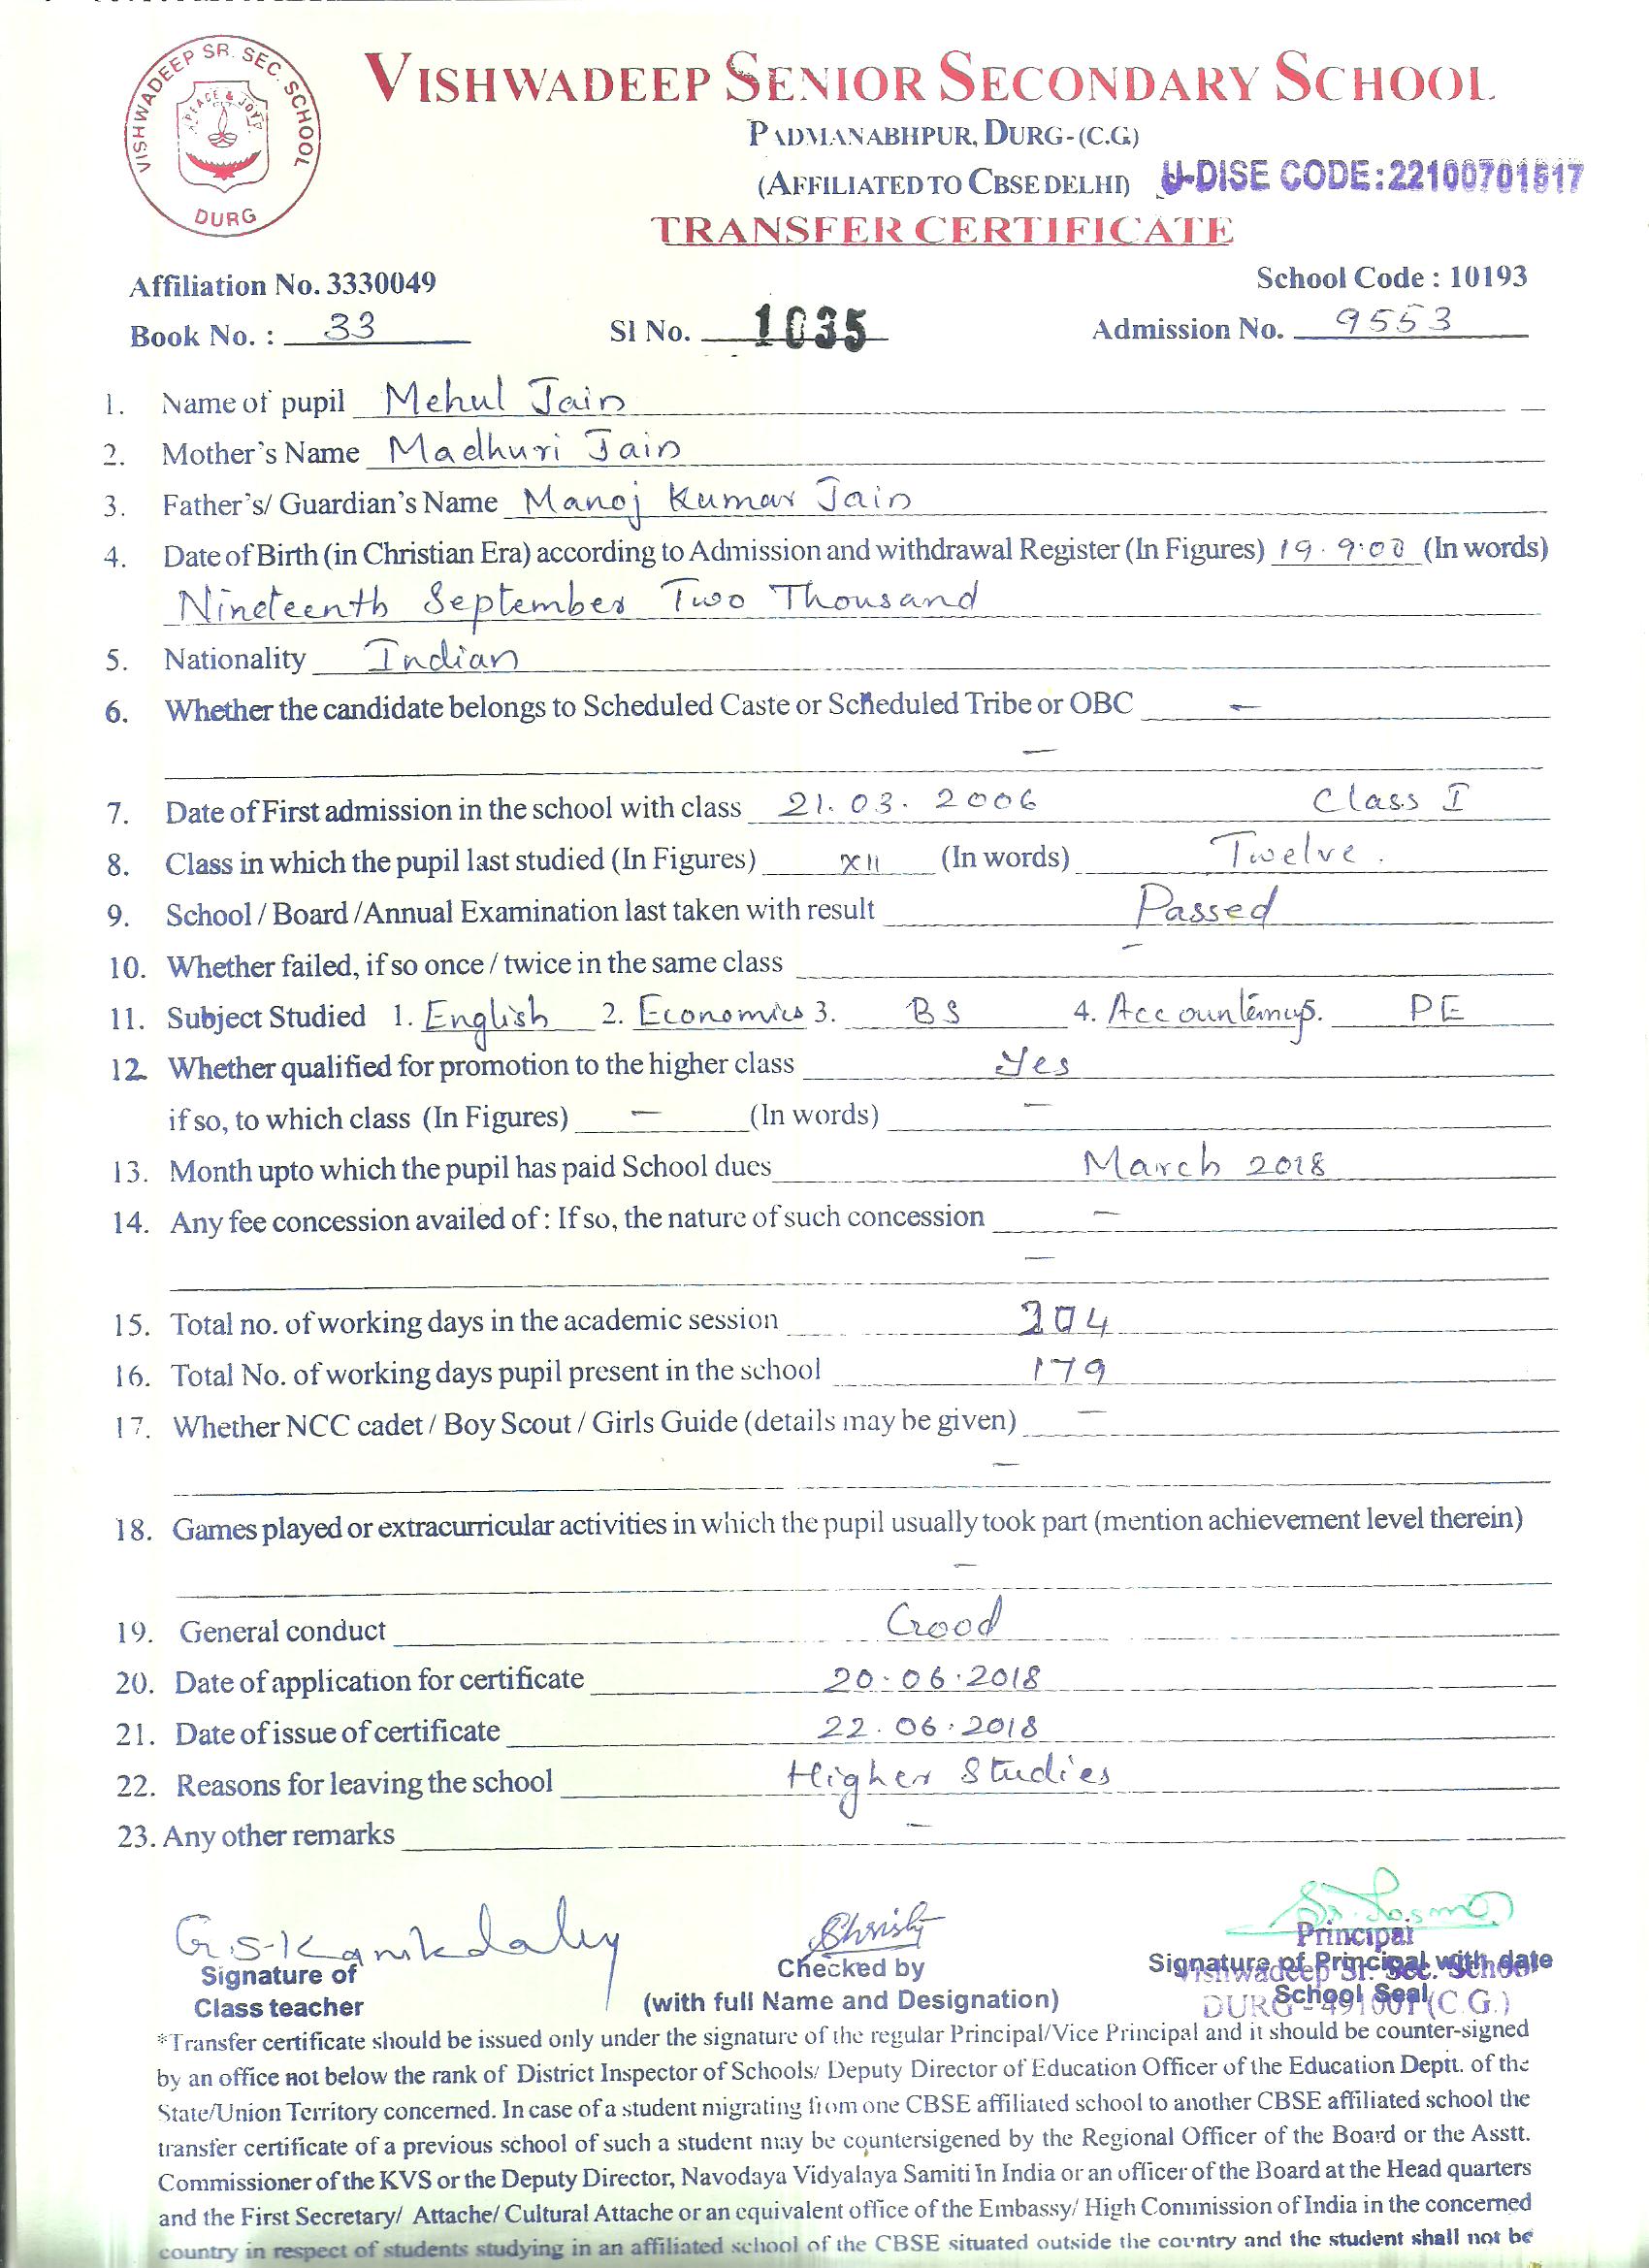 VISHWADEEP SR. SEC. SCHOOL
PEACE & JOY
DURG
VISHWADEEP SENIOR SECONDARY SCHOOL
PADMANABHPUR, DURG-(C.G)
(AFFILIATED TO CBSE DELHI) U-DISE CODE:22100701517
TRANSFER CERTIFICATE
Affiliation No. 3330049 School Code : 10193
Book No. : 33 Sl No. 1035 Admission No. 9553
1. Name of pupil Mehul Jain
2. Mother's Name Madhuri Jain
3. Father's/ Guardian's Name Manoj Kumar Jain
4. Date of Birth (in Christian Era) according to Admission and withdrawal Register (In Figures) 19.9.00 (In words)
Nineteenth September Two Thousand
5. Nationality Indian
6. Whether the candidate belongs to Scheduled Caste or Scheduled Tribe or OBC –
–
7. Date of First admission in the school with class 21.03.2006 Class I
8. Class in which the pupil last studied (In Figures) XII (In words) Twelve.
9. School / Board /Annual Examination last taken with result Passed
10. Whether failed, if so once / twice in the same class –
11. Subject Studied 1. English 2. Economics 3. BS 4. Accountancy 5. PE
12. Whether qualified for promotion to the higher class Yes
if so, to which class (In Figures) – (In words) –
13. Month upto which the pupil has paid School dues March 2018
14. Any fee concession availed of : If so, the nature of such concession –
–
15. Total no. of working days in the academic session 204
16. Total No. of working days pupil present in the school 179
17. Whether NCC cadet / Boy Scout / Girls Guide (details may be given) –
–
18. Games played or extracurricular activities in which the pupil usually took part (mention achievement level therein)
–
19. General conduct Good
20. Date of application for certificate 20.06.2018
21. Date of issue of certificate 22.06.2018
22. Reasons for leaving the school Higher Studies
23. Any other remarks –
Principal
Signature of Checked by Signature of Principal with date
Vishwadeep Sr. Sec. School
Class teacher (with full Name and Designation) School Seal
DURG - 491001 (C.G.)
*Transfer certificate should be issued only under the signature of the regular Principal/Vice Principal and it should be counter-signed
by an office not below the rank of District Inspector of Schools/ Deputy Director of Education Officer of the Education Deptt. of the
State/Union Territory concerned. In case of a student migrating from one CBSE affiliated school to another CBSE affiliated school the
transfer certificate of a previous school of such a student may be countersigned by the Regional Officer of the Board or the Asstt.
Commissioner of the KVS or the Deputy Director, Navodaya Vidyalaya Samiti in India or an officer of the Board at the Head quarters
and the First Secretary/ Attache/ Cultural Attache or an equivalent office of the Embassy/ High Commission of India in the concerned
country in respect of students studying in an affiliated school of the CBSE situated outside the country and the student shall not be